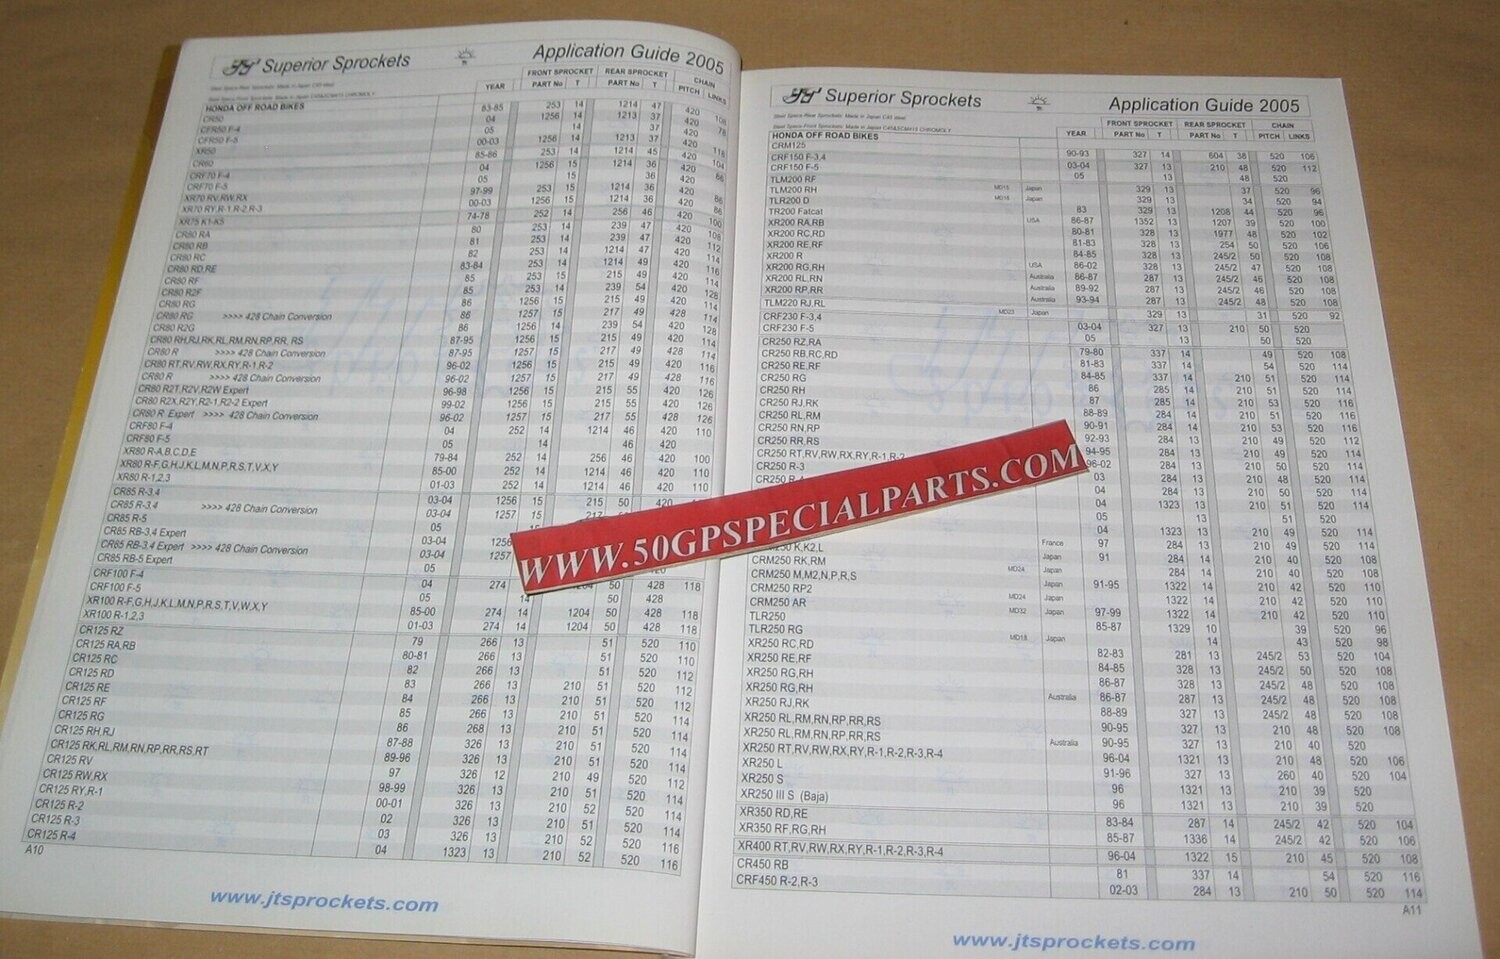 JT Superior Sprockets Application Guide 2005
Steel Specs-Rear Sprockets: Made in Japan C45 steel
Steel Specs-Front Sprockets: Made in Japan C45&SCM415 CHROMOLY
YEAR FRONT SPROCKET PART No T REAR SPROCKET PART No T CHAIN PITCH LINKS
HONDA OFF ROAD BIKES
CR50 83-85 253 14 1214 47 420 108
CRF50 F-4 04 1256 14 1213 37 420 78
CRF50 F-5 05 14 37 420
XR50 00-03 1256 14 1213 37 420
CR60 85-86 253 14 1214 45 420 104
CRF70 F-4 04 1256 15 1214 36 420 86
CRF70 F-5 05 15 36 420
XR70 RV,RW,RX 97-99 253 15 1214 36 420 86
XR70 RY,R-1,R-2,R-3 00-03 1256 15 1214 36 420 86
XR75 K1-K5 74-78 252 14 256 46 420 100
CR80 RA 80 253 14 239 47 420 108
CR80 RB 81 253 14 239 47 420 112
CR80 RC 82 253 14 1214 47 420 114
CR80 RD,RE 83-84 253 14 1214 49 420 116
CR80 RF 85 253 15 215 49 420 114
CR80 R2F 85 253 14 239 54 420 128
CR80 RG 86 1256 15 215 49 420 114
CR80 RG >>>> 428 Chain Conversion 86 1257 15 217 49 428 114
CR80 R2G 86 1256 14 239 54 420 128
CR80 RH,RJ,RK,RL,RM,RN,RP,RR, RS 87-95 1256 15 215 49 420 114
CR80 R >>>> 428 Chain Conversion 87-95 1257 15 217 49 428 114
CR80 RT,RV,RW,RX,RY,R-1,R-2 96-02 1256 15 215 49 420 116
CR80 R >>>> 428 Chain Conversion 96-02 1257 15 217 49 428 116
CR80 R2T,R2V,R2W Expert 96-98 1256 15 215 55 420 126
CR80 R2X,R2Y,R2-1,R2-2 Expert 99-02 1256 15 215 55 420 126
CR80 R Expert >>>> 428 Chain Conversion 96-02 1257 15 217 55 428 126
CRF80 F-4 04 252 14 1214 46 420 110
CRF80 F-5 05 14 46 420
XR80 R-A,B,C,D,E 79-84 252 14 256 46 420 100
XR80 R-F,G,H,J,K,L,M,N,P,R,S,T,V,X,Y 85-00 252 14 1214 46 420 110
XR80 R-1,2,3 01-03 252 14 1214 46 420 110
CR85 R-3,4 03-04 1256 15 215 50 420
CR85 R-3,4 >>>> 428 Chain Conversion 03-04 1257 15 217
CR85 R-5 05
CR85 RB-3,4 Expert 03-04 1256
CR85 RB-3,4 Expert >>>> 428 Chain Conversion 03-04 1257
CR85 RB-5 Expert 05
CRF100 F-4 04 274 1204 50 428 118
CRF100 F-5 05 14 50 428
XR100 R-F,G,H,J,K,L,M,N,P,R,S,T,V,W,X,Y 85-00 274 14 1204 50 428 118
XR100 R-1,2,3 01-03 274 14 1204 50 428 118
CR125 RZ 79 266 13 51 520 110
CR125 RA,RB 80-81 266 13 51 520 110
CR125 RC 82 266 13 51 520 112
CR125 RD 83 266 13 210 51 520 112
CR125 RE 84 266 13 210 51 520 112
CR125 RF 85 266 13 210 51 520 114
CR125 RG 86 268 13 210 51 520 114
CR125 RH,RJ 87-88 326 13 210 51 520 114
CR125 RK,RL,RM,RN,RP,RR,RS,RT 89-96 326 13 210 51 520 114
CR125 RV 97 326 12 210 49 520 112
CR125 RW,RX 98-99 326 13 210 51 520 114
CR125 RY,R-1 00-01 326 13 210 52 520 114
CR125 R-2 02 326 13 210 51 520 114
CR125 R-3 03 326 13 210 52 520 116
CR125 R-4 04 1323 13 210 52 520 116
A10
www.jtsprockets.com
JT Superior Sprockets Application Guide 2005
Steel Specs-Rear Sprockets: Made in Japan C45 steel
Steel Specs-Front Sprockets: Made in Japan C45&SCM415 CHROMOLY
YEAR FRONT SPROCKET PART No T REAR SPROCKET PART No T CHAIN PITCH LINKS
HONDA OFF ROAD BIKES
CRM125 90-93 327 14 604 38 520 106
CRF150 F-3,4 03-04 327 13 210 48 520 112
CRF150 F-5 05 13 48 520
TLM200 RF MD15 Japan 329 13 37 520 96
TLM200 RH MD15 Japan 329 13 34 520 94
TLR200 D 83 329 13 1208 44 520 96
TR200 Fatcat USA 86-87 1352 13 1207 39 520 100
XR200 RA,RB 80-81 328 13 1977 48 520 102
XR200 RC,RD 81-83 328 13 254 50 520 106
XR200 RE,RF 84-85 328 13 245/2 50 520 108
XR200 R USA 86-02 328 13 245/2 47 520 108
XR200 RG,RH Australia 86-87 287 13 245/2 46 520 108
XR200 RL,RN Australia 89-92 287 13 245/2 46 520 108
XR200 RP,RR Australia 93-94 287 13 245/2 48 520 108
TLM220 RJ,RL MD23 Japan 329 13 31 520 92
CRF230 F-3,4 03-04 327 13 210 50 520
CRF230 F-5 05 13 50 520
CR250 RZ,RA 79-80 337 14 49 520 108
CR250 RB,RC,RD 81-83 337 14 54 520 114
CR250 RE,RF 84-85 337 14 210 51 520 114
CR250 RG 86 285 14 210 51 520 114
CR250 RH 87 285 14 210 53 520 116
CR250 RJ,RK 88-89 284 14 210 51 520 114
CR250 RL,RM 90-91 284 14 210 53 520 116
CR250 RN,RP 92-93 284 13 210 49 520 112
CR250 RR,RS 94-95 284 13 210 49 520 114
CR250 RT,RV,RW,RX,RY,R-1,R-2 96-02 284 13 210 50 520 114
CR250 R-3 03 284 13 210 48 520 114
CR250 R-4 04 284 13 210 50 520 114
04 1323 13 210 51 520 114
05 13 51 520
04 1323 13 210 49 520 114
CRM250 K,K2,L France 97 284 13 210 49 520
CRM250 RK,RM Japan 91 284 14 210 40 520 108
CRM250 M,M2,N,P,R,S MD24 Japan 284 14 210 40 520 108
CRM250 RP2 Japan 91-95 1322 14 210 42 520 110
CRM250 AR MD24 Japan 1322 14 210 42 520 108
TLR250 MD32 Japan 97-99 1322 14 210 42 520 110
TLR250 RG 85-87 1329 10 39 520 96
XR250 RC,RD MD18 Japan 14 43 520 98
XR250 RE,RF 82-83 281 13 245/2 53 520 104
XR250 RG,RH 84-85 328 13 245/2 50 520 108
XR250 RG,RH 86-87 328 13 245/2 48 520 108
XR250 RJ,RK Australia 86-87 287 13 245/2 48 520 108
XR250 RL,RM,RN,RP,RR,RS 88-89 327 13 245/2 48 520 108
XR250 RL,RM,RN,RP,RR,RS 90-95 327 13 210 48 520 108
XR250 RT,RV,RW,RX,RY,R-1,R-2,R-3,R-4 Australia 90-95 327 13 210 40 520
XR250 L 96-04 1321 13 210 48 520 106
XR250 S 91-96 327 13 260 40 520 104
XR250 III S (Baja) 96 1321 13 210 39 520
96 1321 13 210 39 520
XR350 RD,RE 83-84 287 14 245/2 42 520 104
XR350 RF,RG,RH 85-87 1336 14 245/2 42 520 106
XR400 RT,RV,RW,RX,RY,R-1,R-2,R-3,R-4 96-04 1322 15 210 45 520 108
CR450 RB 81 337 14 54 520 116
CRF450 R-2,R-3 02-03 284 13 210 50 520 114
A11
www.jtsprockets.com
WWW.50GPSPECIALPARTS.COM